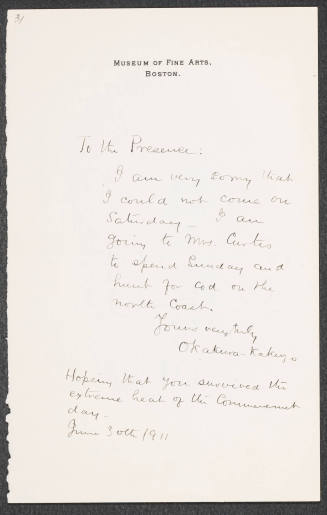 31
MUSEUM OF FINE ARTS,
BOSTON.
To the Presence:
I am very sorry that
I could not come on
Saturday— I am
going to Mrs. Curtis
to spend Sunday and
hunt for cod on the
north Coast.
Yours very truly
Okakura-Kakuzo
Hoping that you survived the
extreme heat of the Commencement
day—
June 30th 1911